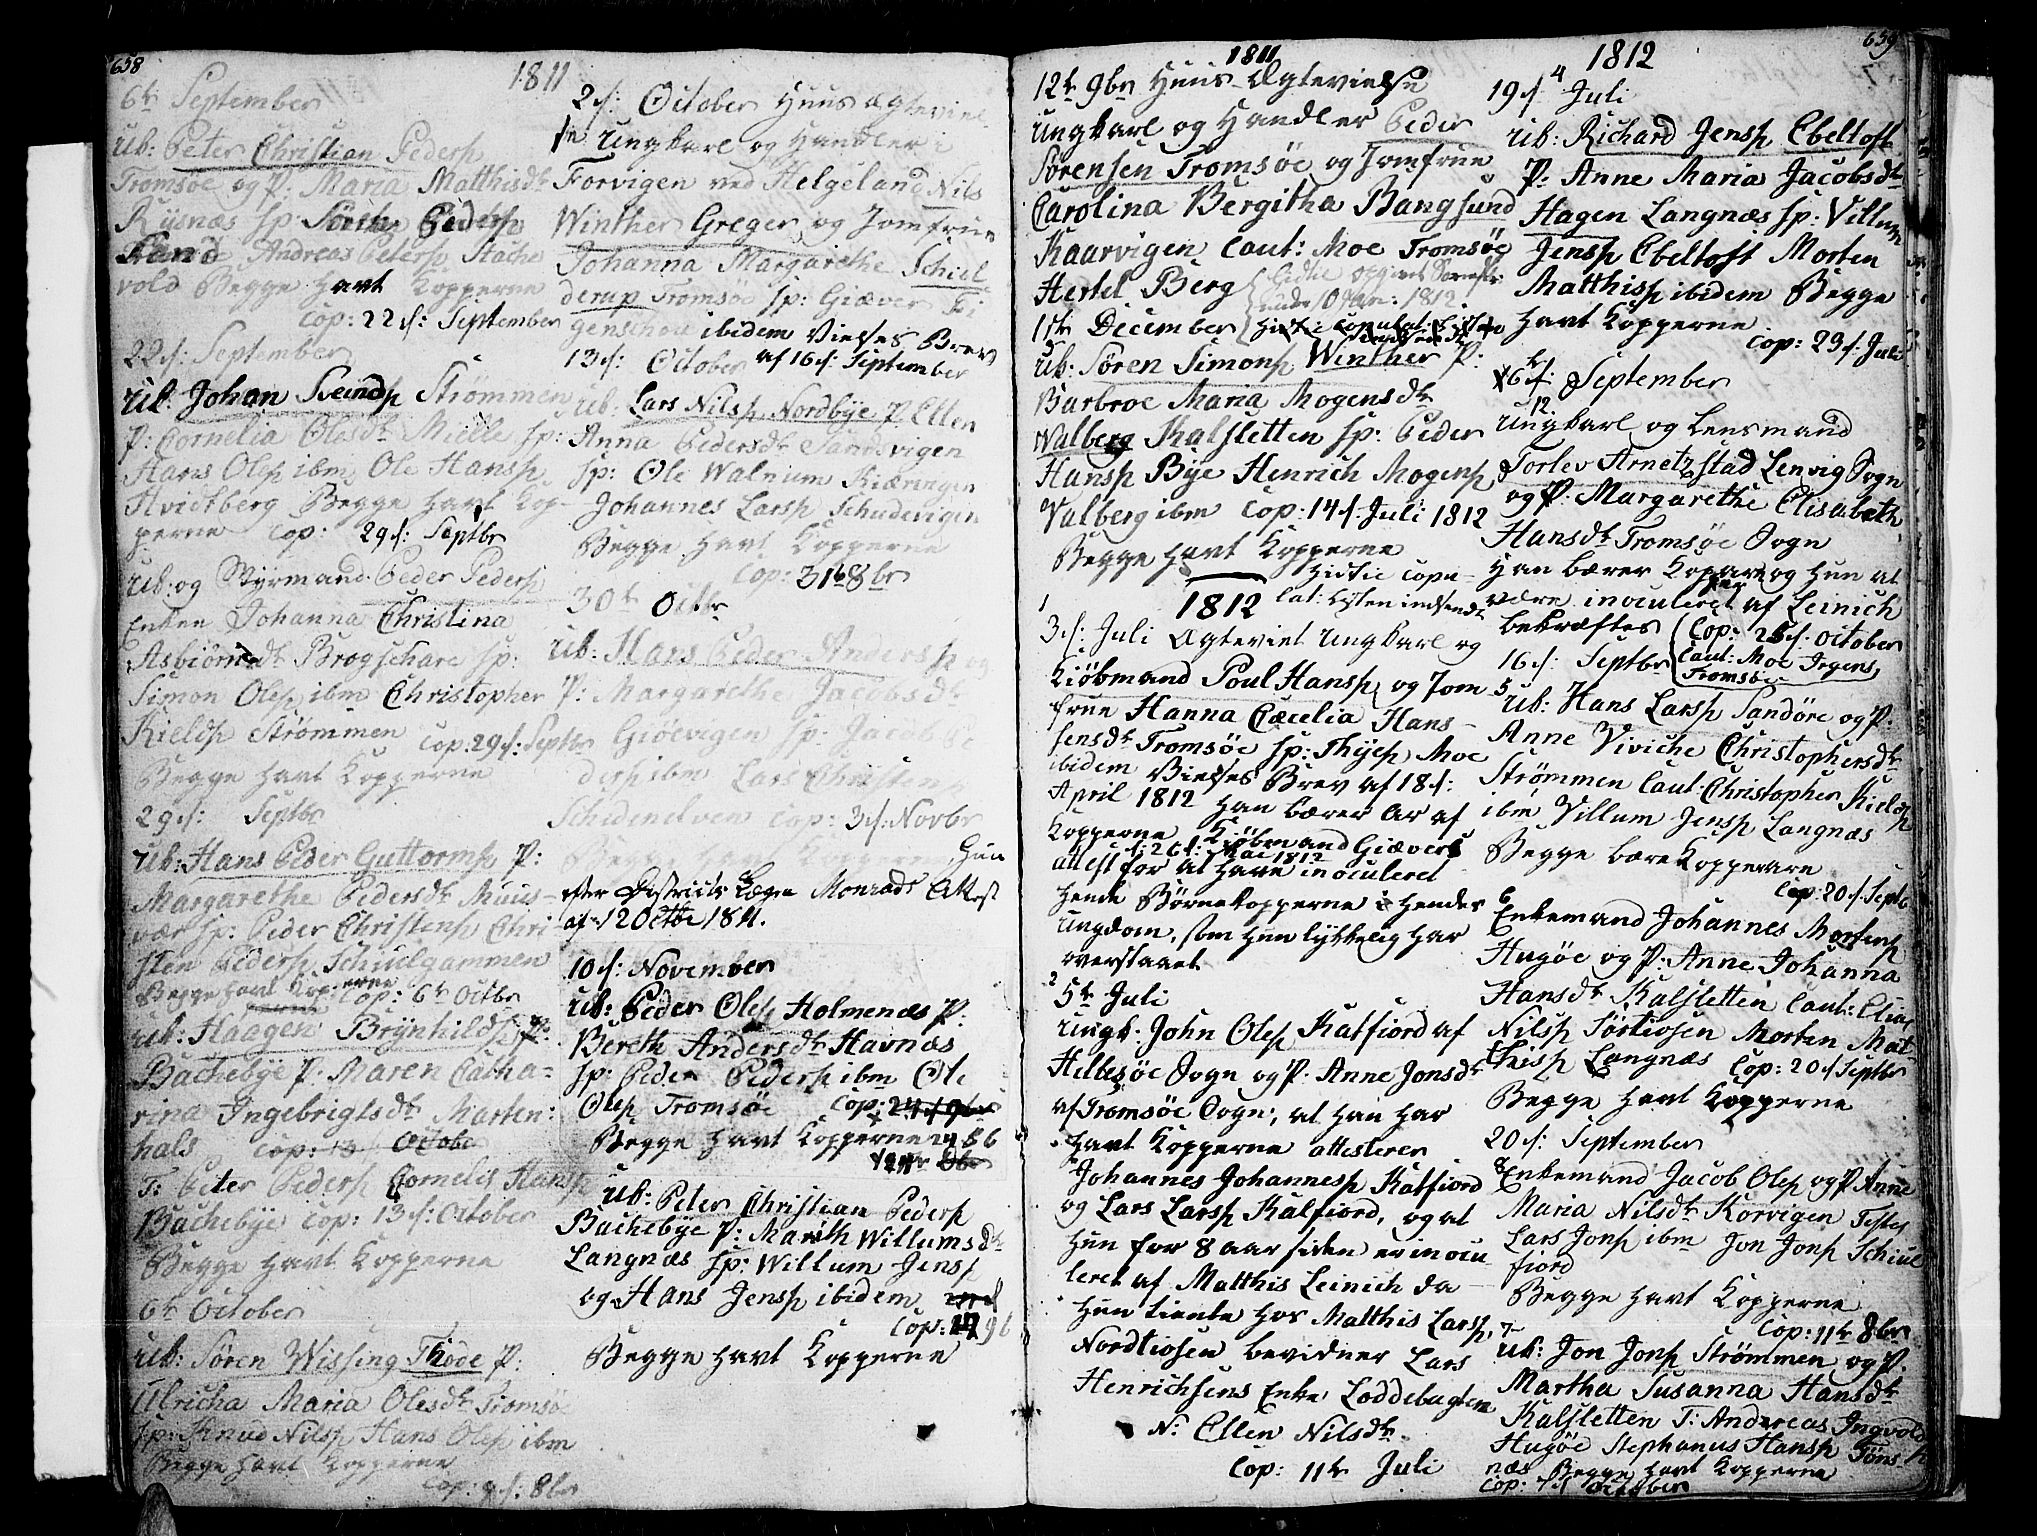 658
1811
6te September
Ub: Peter Christian Pedersp
Tromsøe og P: Maria Matthisdtr
Rysnæs Sp: Pedersp
Sand Andreas Petersp Stache
vold Begge havt Kopperne
Cop: 22d: September
22d: September
Ub: Johan Svendsp Strømmen
P: Cornelia Olesdtr Mielle Sp:
Hans Olsp ibm Ole Hansp
Hvidtberg Begge havt Kop-
perne Cop: 29d: Septbr
Ub: og Styrmand Peder Pedersp
Enken Johanna Christina
Asbiørnsdtr Brogschare Sp:
Simon Olsp ibm Christopher
Kieldsp Strømmen Cop: 29d: Septbr
Begge havt Kopperne
29d: Septbr
Ub: Hans Peder Guttormsp P:
Margarethe Pedersdtr Muus-
vær Sp: Peder Christensp Chri-
sten Pedersp Schiulgammen
Begge havt Kopperne Cop: 6te Octbr
Ub: Haagen Brynhildsp
Bachebye P: Maren Catha=
rina Ingebrigtsdtr Marten:
hals Cop: 13 Octobr
T: Peter Pedersp Cornelis Hansp
Bachebye Cop: 13d: October
Begge havt Kopperne
6te October
Ub: Søren Wissing Thode P:
Ulricha Maria Olesdtr Tromsøe
Sp: Knud Nilsp Hans Olsp ibm
Begge havt Kopperne
Cop: 9d: 8br
2d: October Huus Ægteviel
se Ungkarl og Handler i
Forvigen ved Helgeland Nils
Winther Greger og Jomfrue
Johanna Margarethe Schiel
derup Tromsøe Sp: Giæver Fi
genschou ibidem Vielses Brev
af 16d: September
13d: October
Ub: Lars Nilsp Nordbye P Ellen
Anna Pedersdtr Sandsvigen
Sp: Ole Walnum Kiæringen
Johannes Larsp Schudevigen
Begge havt Kopperne
Cop: 31te 8br
30te Octbr
Ub: Hans Peder Andersp og
P: Margarethe Jacobsdtr
Giøevigen Sp: Jacob Pe
dersp ibm Lars Christensp
Schidenelven Cop: 3d: Novbr
Begge Hun
efter Districts Lægen Monrads Attest
af 12 Octbr 1811.
10d: November
Ub: Peder Olsp Holmenæs P:
Bereth Andersdtr Havnæs
Sp: Peder Pedersp ibm Ole
Olsp Tromsøe Cop: 24d 9br
Begge havt Kopperne
Ub: Peter Christian Pedersp
Bachebye P: Mareth Willumsdtr
Langnæs Sp: Willum Jensp
og Hans Jensp ibidem
Cop:
Begge havt Kopperne
1811
12te 9br Huus-Ægtevielse
Ungkarl og Handler Peder
Sørensen Tromsøe og Jomfrue
Carolina Bergitha Bangsund
Kaarvigen Caut: Moe Tromsøe
Hertel Berg
1ste December Hidtil Copulat: Listen indsendt
Ub: Søren Simonsp Winther P:
Barbroe Maria Mogensdtr
Walberg Kalsletten Sp: Peder
Hansp Bye Henrich Mogensp
Valberg ibm Cop: 14d: Juli 1812
Begge havt Kopperne
Hidtil Copu-
lat: Lysten indsendt
1812
1
3d: Juli Ægteviet Ungkarl og
Kiøbmand Poul Hansp og Jom
frue Hanna Cæcelia Hans-
sensdtr Tromsøe Sp: Thysp Moe
ibidem Vielses Brev af 18d:
April 1812 Han bærer Ar af
Kopperne Kiøbmand Giævers
attest for at have inoculeret
Hende Børnekopperne i Hendes
Ungdom, som hun lykkelig har
overstaaet
2
5te Juli
Ungk: John Olsp Katfiord af
Hillesøe Sogn og P: Anne Jonsdtr
af Tromsøe Sogn, at han har
havt Kopperne attesterer
Johannes Johannesp Katfiord
og Lars Larsp Kalfiord, og at
Hun for 8 aar siden er inocu
leret af Matthis Leinich da
Hun tiente hos Matthis Larsp
Nordtiosen bevidner Lars
Henrichsens Enke Loddebugten
N: Ellen Nilsdtr.
Cop: 11te Juli
659
1812
4
19d: Juli
Ub: Richard Jensp Ebeltoft
P: Anne Maria Jacobsdtr
Hagen Langnæs Sp: Villum
Jensp Ebeltoft Morten
Matthisp ibidem Begge
havt Kopperne
Cop: 29d: Juli
6te September
12
Ungkarl og Lensmand
Torlev Arnetzstad Lenvig Sogn
og P. Margarethe Elisabeth
Hansdtr Tromsøe Sogn
Han bærer Kopar og Hun at
være inoculeret af Leinich
bekræftes
Cop: 28d: October
Caut: Moe Irgens
Tromsøe
16d: Septbr
5
Ub: Hans Larsp Sandøre og P:
Anne Viviche Christophersdtr
Strømmen Caut: Christopher Kieldsp
ibm Villum Jensp Langnæs
Begge bære Kopperare
Cop: 20d: Septb
6
Enkemand Johannes Mortensp
Hugøe og P: Anne Johanna
Hansdtr Kalsletten Caut: Elias
Nilsp Sørtiosen Morten Mat-
thisp Langnæs Cop: 20d Septbr
Begge havt Kopperne
20d: September
8
Enkemand Jacob Olsp og P Anne
Maria Nilsdtr Korvigen Testes
Lars Jonsp ibm Jon Jonsp Schiul
fiord
Begge havt Kopperne
Cop: 11te 8br
7
Ub: Jon Jonsp Strømmen og P.
Martha Susanna Hansdtr
Kalsletten T: Andreas Ingvold
Hugøe Stephanus Hansp Tøns-
næs Begge havt Kopperne
Cop: 7d October